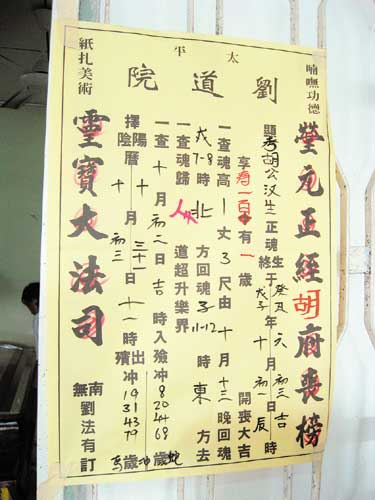 太平
劉道院
喃嘸功德
瑩元正經胡府喪榜
題考胡公汉生正魂
生癸丑六月初三吉
終于戊子年十月初一辰時
享寿一百有一歲 開喪大吉
一查魂高1丈3尺由十月十三晚回魂
戊7-8時北方回魂子11-12時東方去
一查魂歸人道超升樂界
一查十月初二日吉時入殮冲8 20 44 68歲蛇
擇陽曆十月三十一
陰曆十月初三
十一時出殯冲19 31 43 79歲馬
南無劉法有訂
紙扎美術
靈寶大法司